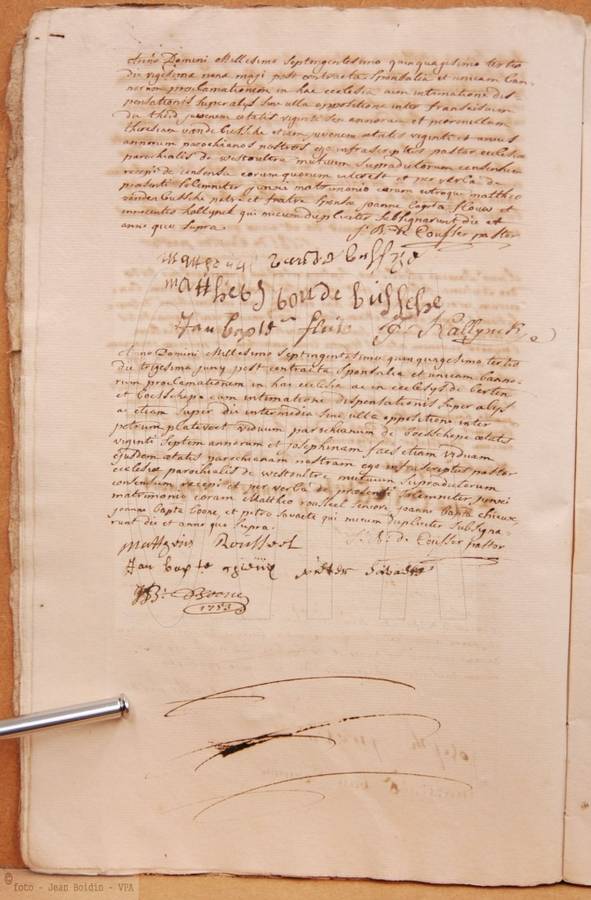 Anno Domini Millesimo septingentesimo quinquagesimo tertio
die vigesima nona maji post contracta sponsalia et unicam ban-
norum proclamationem in hac ecclesia cum intimatione dis-
pensationis super alys sine ulla oppositione inter franciscum
du juvenem ætatis viginti sex annorum et
theresiam vande Bussche etiam juvenem ætatis viginti et unius
annorum parochianos nostros ego infrascriptus pastor ecclesiæ
parochialis de westoutre mutuum supradictorum consensum
recepi de consensu eorum quorum interest et per verba de
præsenti solemniter junxi matrimonio coram utroque mattheo
vanden Bussche patre et fratre sponsæ joanne bapta flouw et
Kallynck qui mecum dupliciter subsignarunt die et
anno quo supra J: B: De Cousser pastor
vande bussche
mattheus vande bussche
Jan bapte Kallynck
Anno Domini Millesimo septingentesimo quinquagesimo tertio
die trigesima juny post contracta sponsalia et unicam banno-
rum proclamationem in hac ecclesia ac in ecclesys de berten
et boesschepe cum intimatione dispensationis super alys
ac etiam super die intermedia sine ulla oppositione inter
petrum platevoet viduum parochianum de boesschepe ætatis
viginti septem annorum et josephinam faes etiam viduam
ejusdem ætatis parochianam nostram ego infrascriptus pastor
ecclesiæ parochialis de westoutre mutuum supradictorum
consensum recepi et per verba de præsenti solemniter junxi
matrimonio coram Mattheo rousseel seniore joanne bapta chieux,
joanne bapta boone, et petro savaete qui mecum dupliciter subsigna-
runt die et anno quo supra. J: B: de Cousser pastor
Mattheus Rousseel
Jan bapte pieter savaete
JB: Boone
1753
© foto - Jean Boldin - VPA